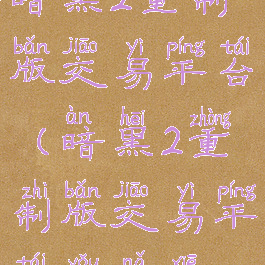 暗黑2重制
bǎn jiāo yì píng tái
版交易平台
àn hēi zhòng
(暗黑2重
zhì bǎn jiāo yì píng
制版交易平
tái yǒu nǎ xiē